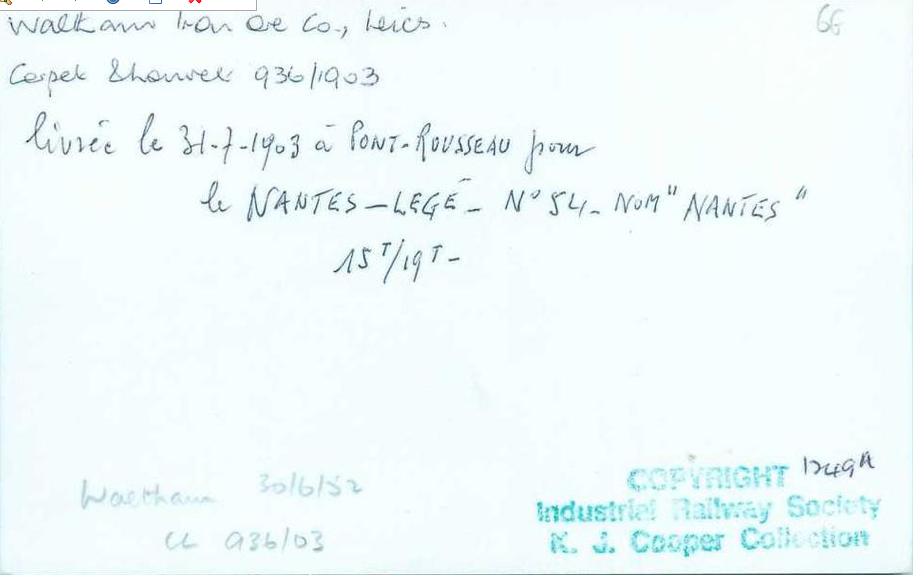 Waltham Iron Ore Co., Leics.
GG
Corpet & Louvet 936/1903
livrée le 31-7-1903 à PONT-ROUSSEAU pour
le NANTES-LEGÉ- N° 54- NOM "NANTES"
15T/19T-
Waltham 30/6/52
CL 936/03
COPYRIGHT 1249A
Industrial Railway Society
K. J. Cooper Collection